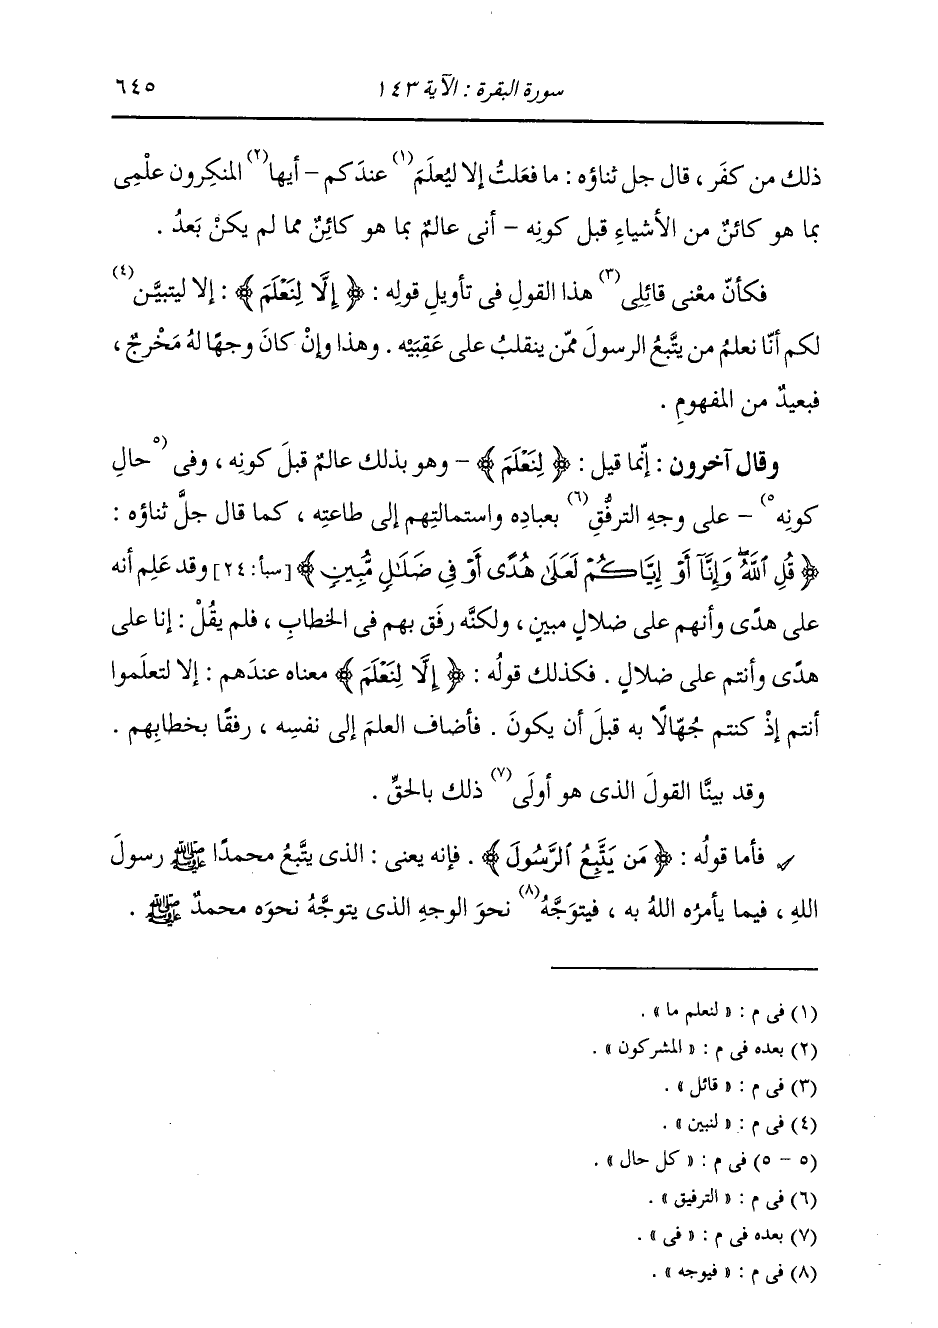 سورة البقرة : الآية ١٤٣ ٦٤٥
ذلك من كفَر ، قال جل ثناؤه : ما فعَلتُ إلا ليُعلَمَ(١) عندَكم – أيها(٢) المنكِرون علْمِى
بما هو كائنٌ من الأشياءِ قبل كونِه – أنى عالمٌ بما هو كائِنٌ مما لم يكنْ بَعدُ .
فكأنّ معْنى قائلِى(٣) هذا القولِ فى تأويلِ قولِه : ﴿ إِلَّا لِنَعْلَمَ ﴾ : إلا ليتبيَّن(٤)
لكم أنّا نعلمُ من يتَّبعُ الرسولَ ممّن ينقلبُ على عَقِبَيْه . وهذا وإنْ كانَ وجهًا لهُ مَخْرجٌ ،
فبعيدٌ من المفهومِ .
وقال آخرون : إنّما قيل : ﴿ لِنَعْلَمَ ﴾ – وهو بذلك عالمٌ قبلَ كونِه ، وفى (٥حالِ
كونِه٥) – على وجهِ الترفُّقِ(٦) بعبادِه واستمالتِهم إلى طاعتِه ، كما قال جلَّ ثناؤه :
﴿ قُلِ ٱللَّهُۖ وَإِنَّآ أَوْ إِيَّاكُمْ لَعَلَىٰ هُدًى أَوْ فِى ضَلَٰلٍ مُّبِينٍ ﴾ [سبأ: ٢٤] وقد عَلِم أنه
على هدًى وأنهم على ضلالٍ مبينٍ ، ولكنَّه رفَق بهم فى الخطابِ ، فلم يقُلْ : إنا على
هدًى وأنتم على ضلالٍ . فكذلك قولُه : ﴿ إِلَّا لِنَعْلَمَ ﴾ معناه عندَهم : إلا لتعلَموا
أنتم إذْ كنتم جُهّالًا به قبلَ أن يكونَ . فأضاف العلمَ إلى نفسِه ، رفقًا بخطابِهم .
وقد بينَّا القولَ الذى هو أولَى(٧) ذلك بالحقِّ .
فأما قولُه : ﴿ مَن يَتَّبِعُ ٱلرَّسُولَ ﴾ . فإنه يعنى : الذى يتَّبعُ محمدًا ﷺ رسولَ
اللهِ ، فيما يأمرُه اللهُ به ، فيتوَجَّهُ(٨) نحوَ الوجهِ الذى يتوجَّهُ نحوَه محمدٌ ﷺ .
(١) فى م : « لنعلم ما » .
(٢) بعده فى م : « المشركون » .
(٣) فى م : « قائل » .
(٤) فى م : « لنبين » .
(٥ – ٥) فى م : « كل حال » .
(٦) فى م : « الترفيق » .
(٧) بعده فى م : « فى » .
(٨) فى م : « فيوجه » .